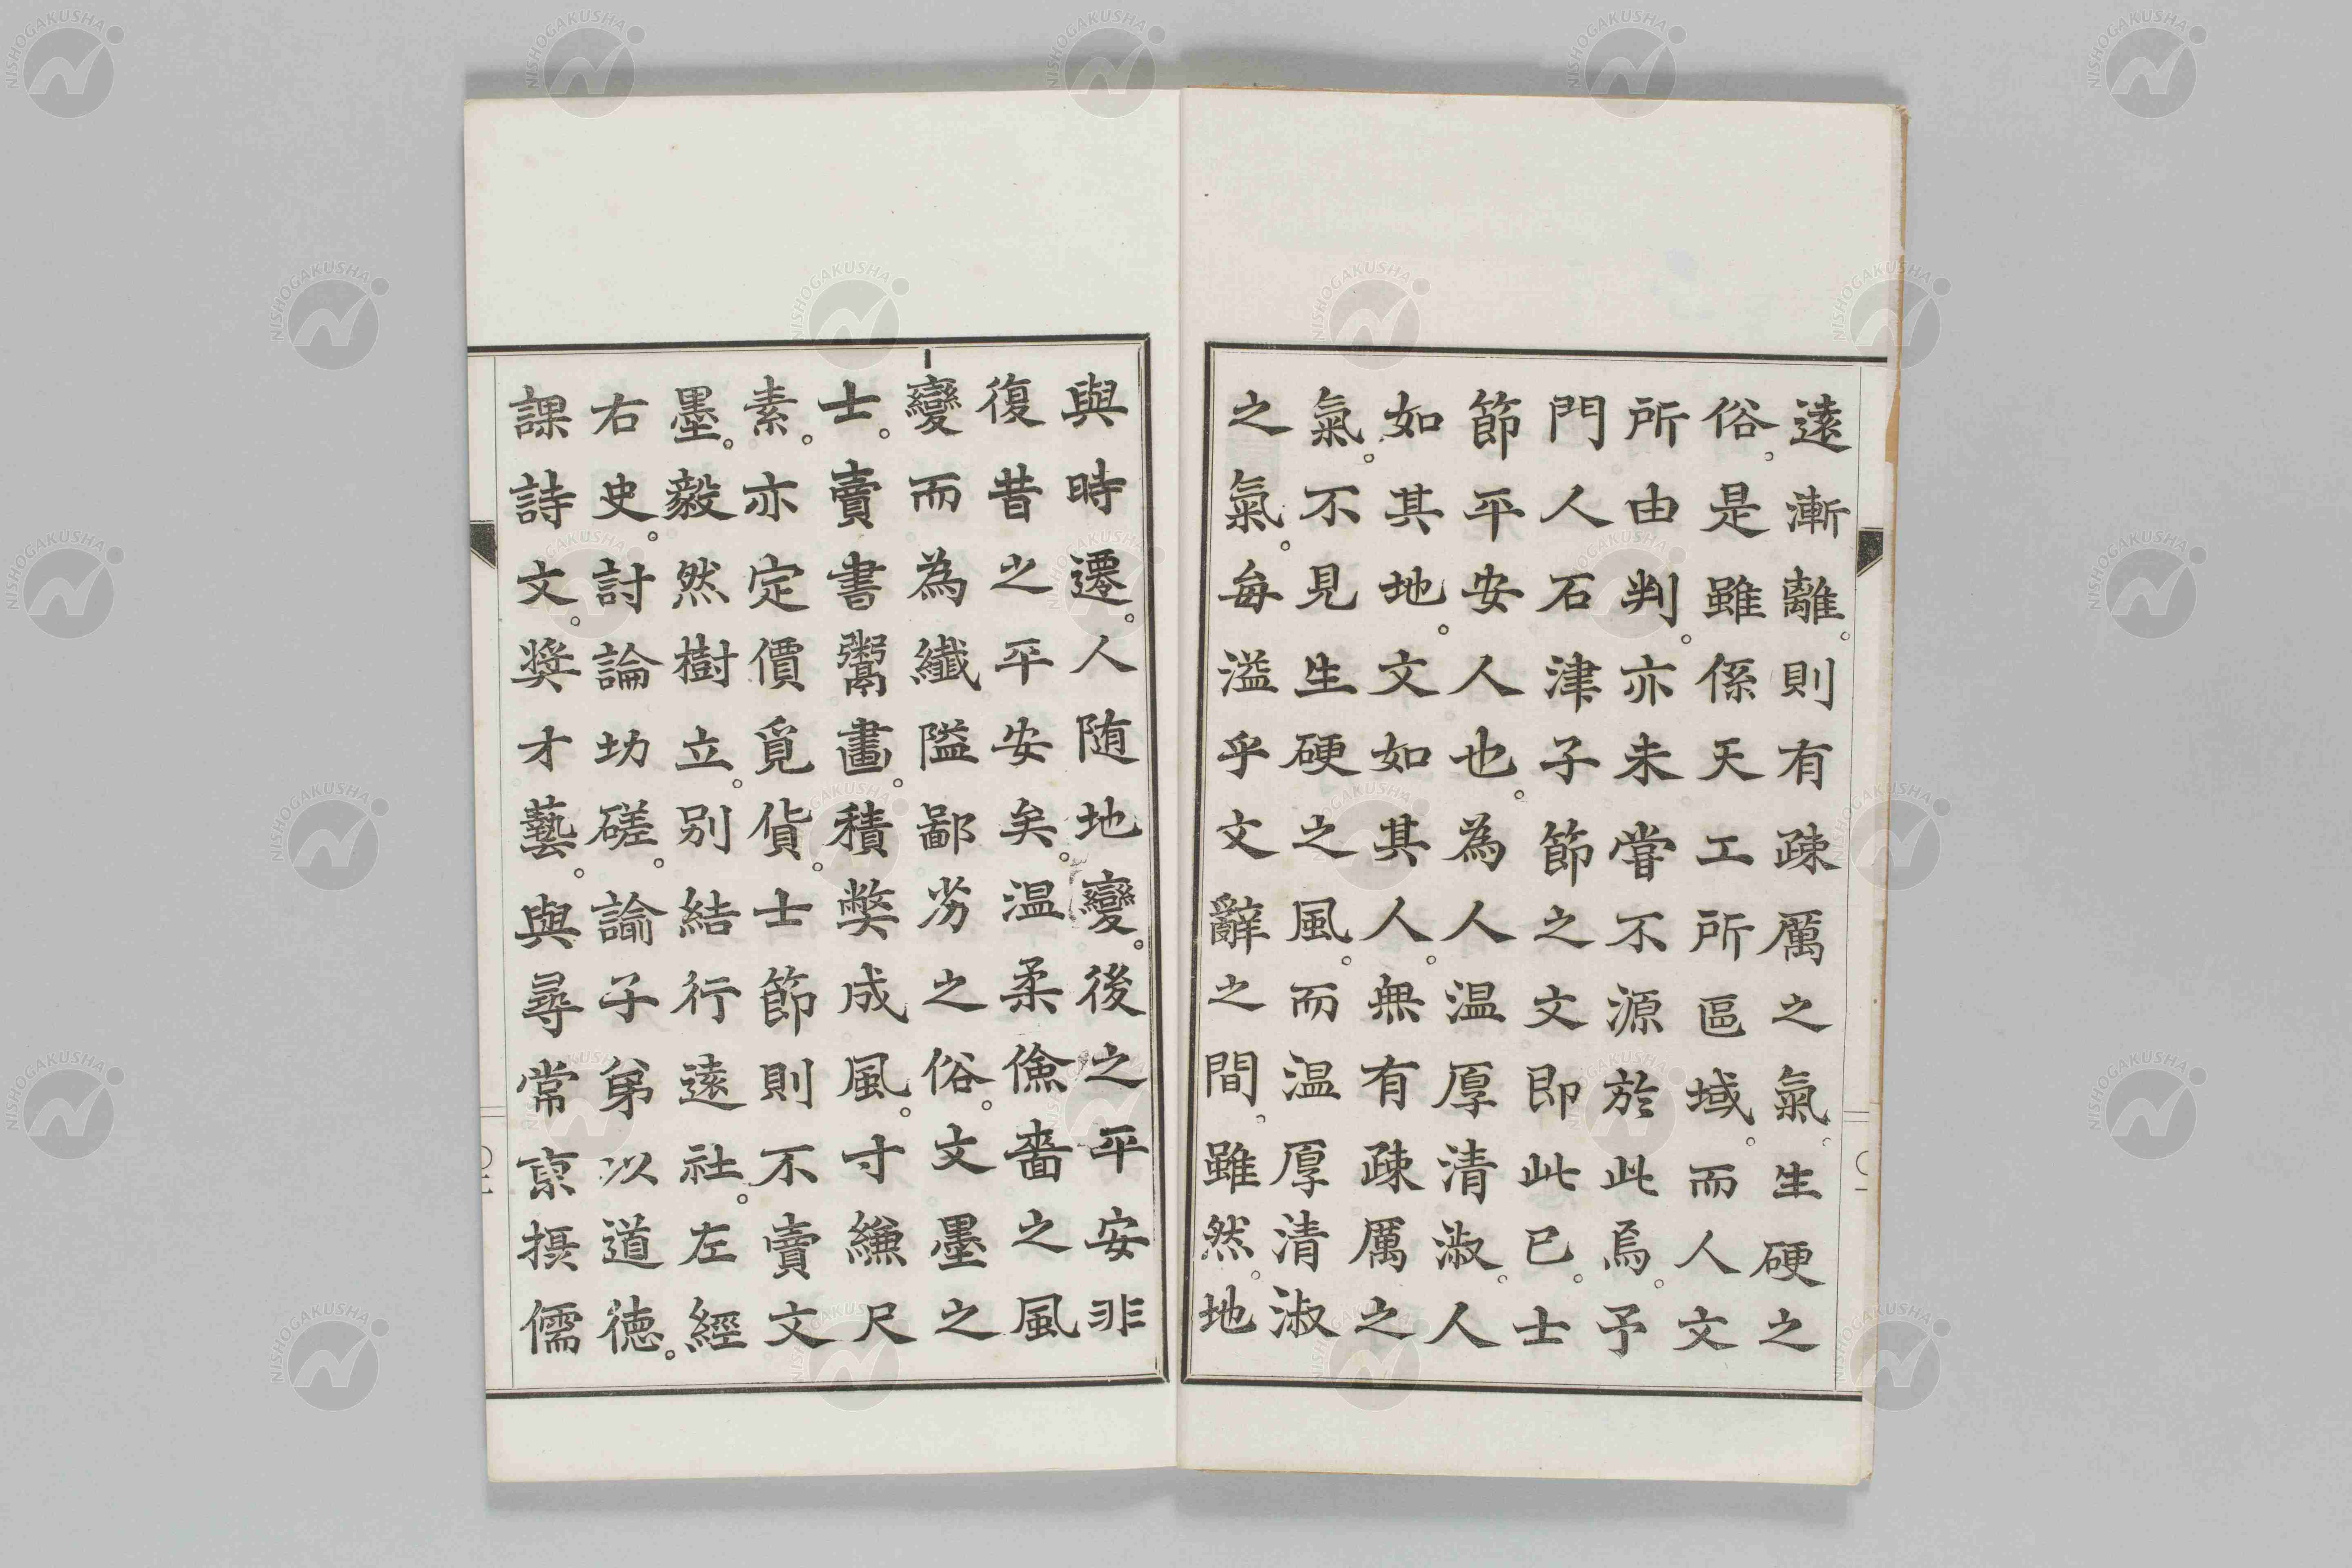 遠漸離。則有疎厲之氣。生硬之
俗。是雖係天工所區域。而人文
所由判。亦未嘗不源於此焉。予
門人石津子節之文即此已。士
節平安人也。為人温厚清淑。人
如其地。文如其人。無有疎厲之
氣。不見生硬之風。而温厚清淑
之氣。每溢乎文辭之間。雖然。地
與時遷。人随地變。後之平安非
復昔之平安矣。温柔儉嗇之風
變而為纖隘鄙劣之俗。文墨之
士。賣書鬻畫。積弊成風。寸縑尺
素。亦定價覓貨。士節則不賣文
墨。毅然樹立。別結行遠社。左經
右史。討論切磋。諭子弟以道德。
課詩文。奬才藝。與尋常京攝儒
NISHOGAKUSHA